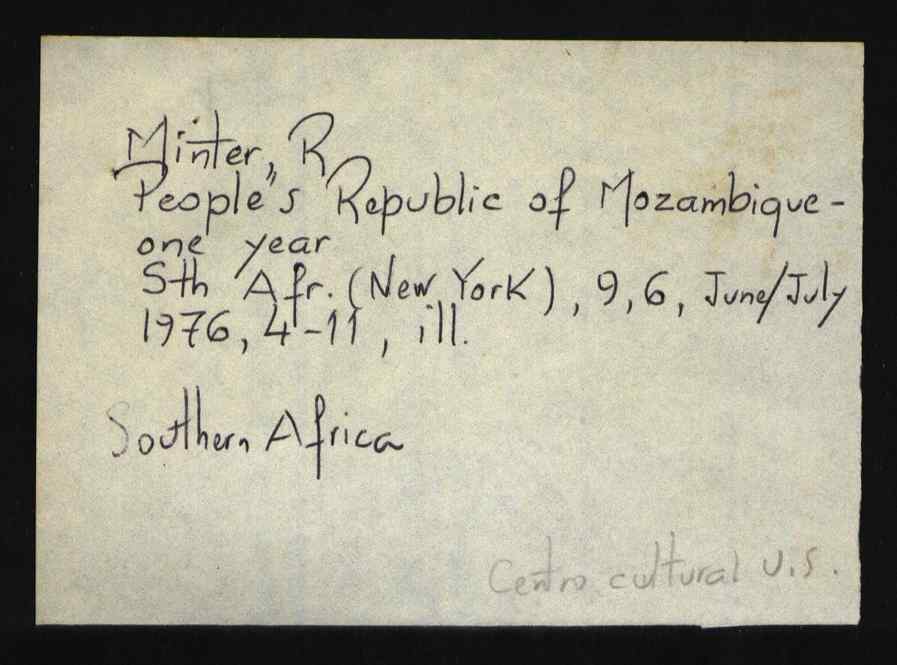 Minter, R
People's Republic of Mozambique -
one year
Sth Afr. (New York), 9, 6, June/July
1976, 4-11, ill.
Southern Africa
Centro cultural U.S.